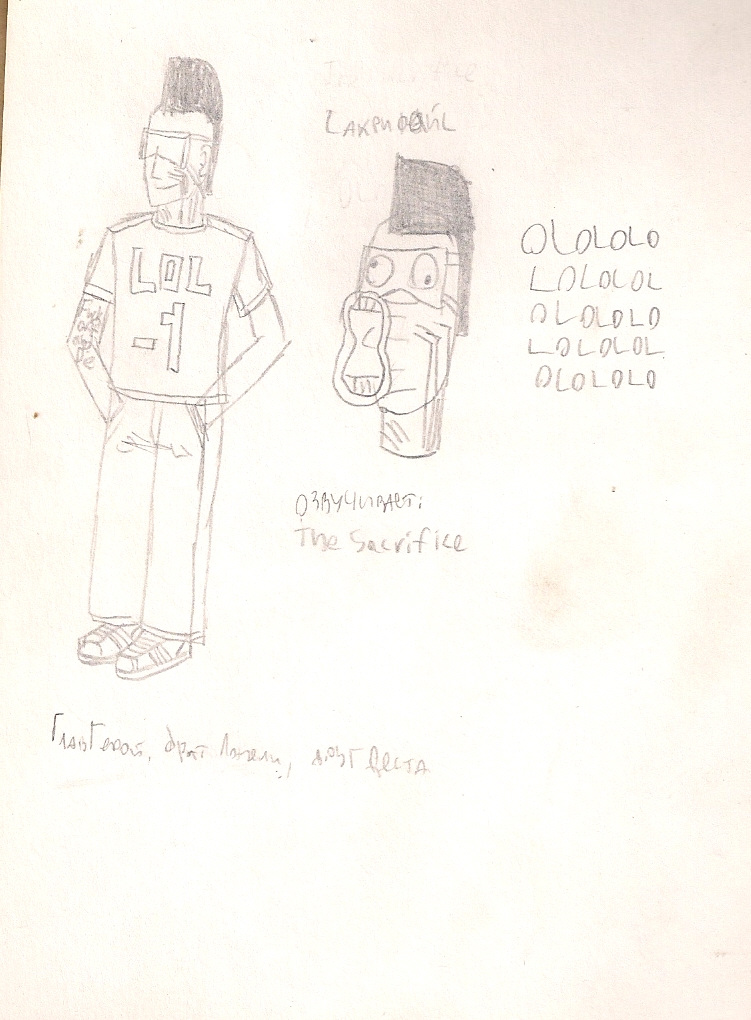 Сакрифайс
LOL
-1
OLOLOLO
LOLOLOL
OLOLOLO
LOLOLOL
OLOLOLO
озвучивает:
The Sacrifice
ГлавГерой, брат друг Деста